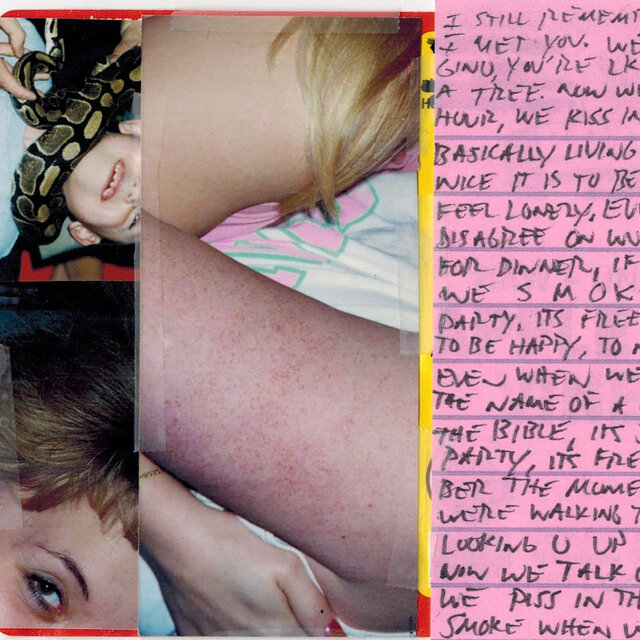 I STILL REMEM
I MET YOU. WE
GINO, YOU'RE LK
A TREE. NOW WE
HOUR, WE KISS IN
BASICALLY LIVING
NICE IT IS TO BE
FEEL LONELY, EV
DISAGREE ON
FOR DINNER, IF
WE SMOK
PARTY, ITS FREE
TO BE HAPPY, TO
EVEN WHEN WE
THE NAME OF A
THE BIBLE, ITS
PARTY, ITS FREE
BER THE MOME
WERE WALKING T
LOOKING U UP
NOW WE TALK
WE PISS IN TH
SMOKE WHEN